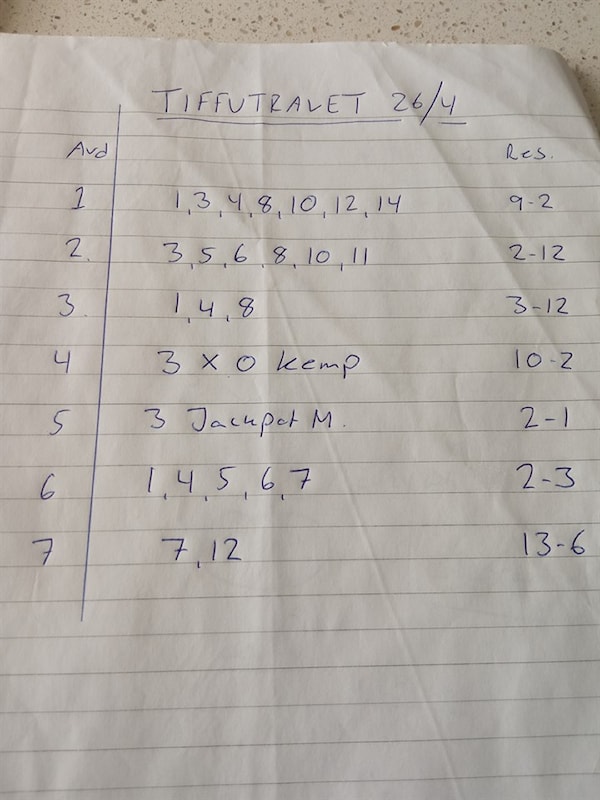 TIFFUTRAVET 26/4
Avd Res.
1 1,3,4,8,10,12,14 9-2
2. 3,5,6,8,10,11 2-12
3. 1,4,8 3-12
4 3 X O Kemp 10-2
5 3 Jackpot M. 2-1
6 1,4,5,6,7 2-3
7 7,12 13-6